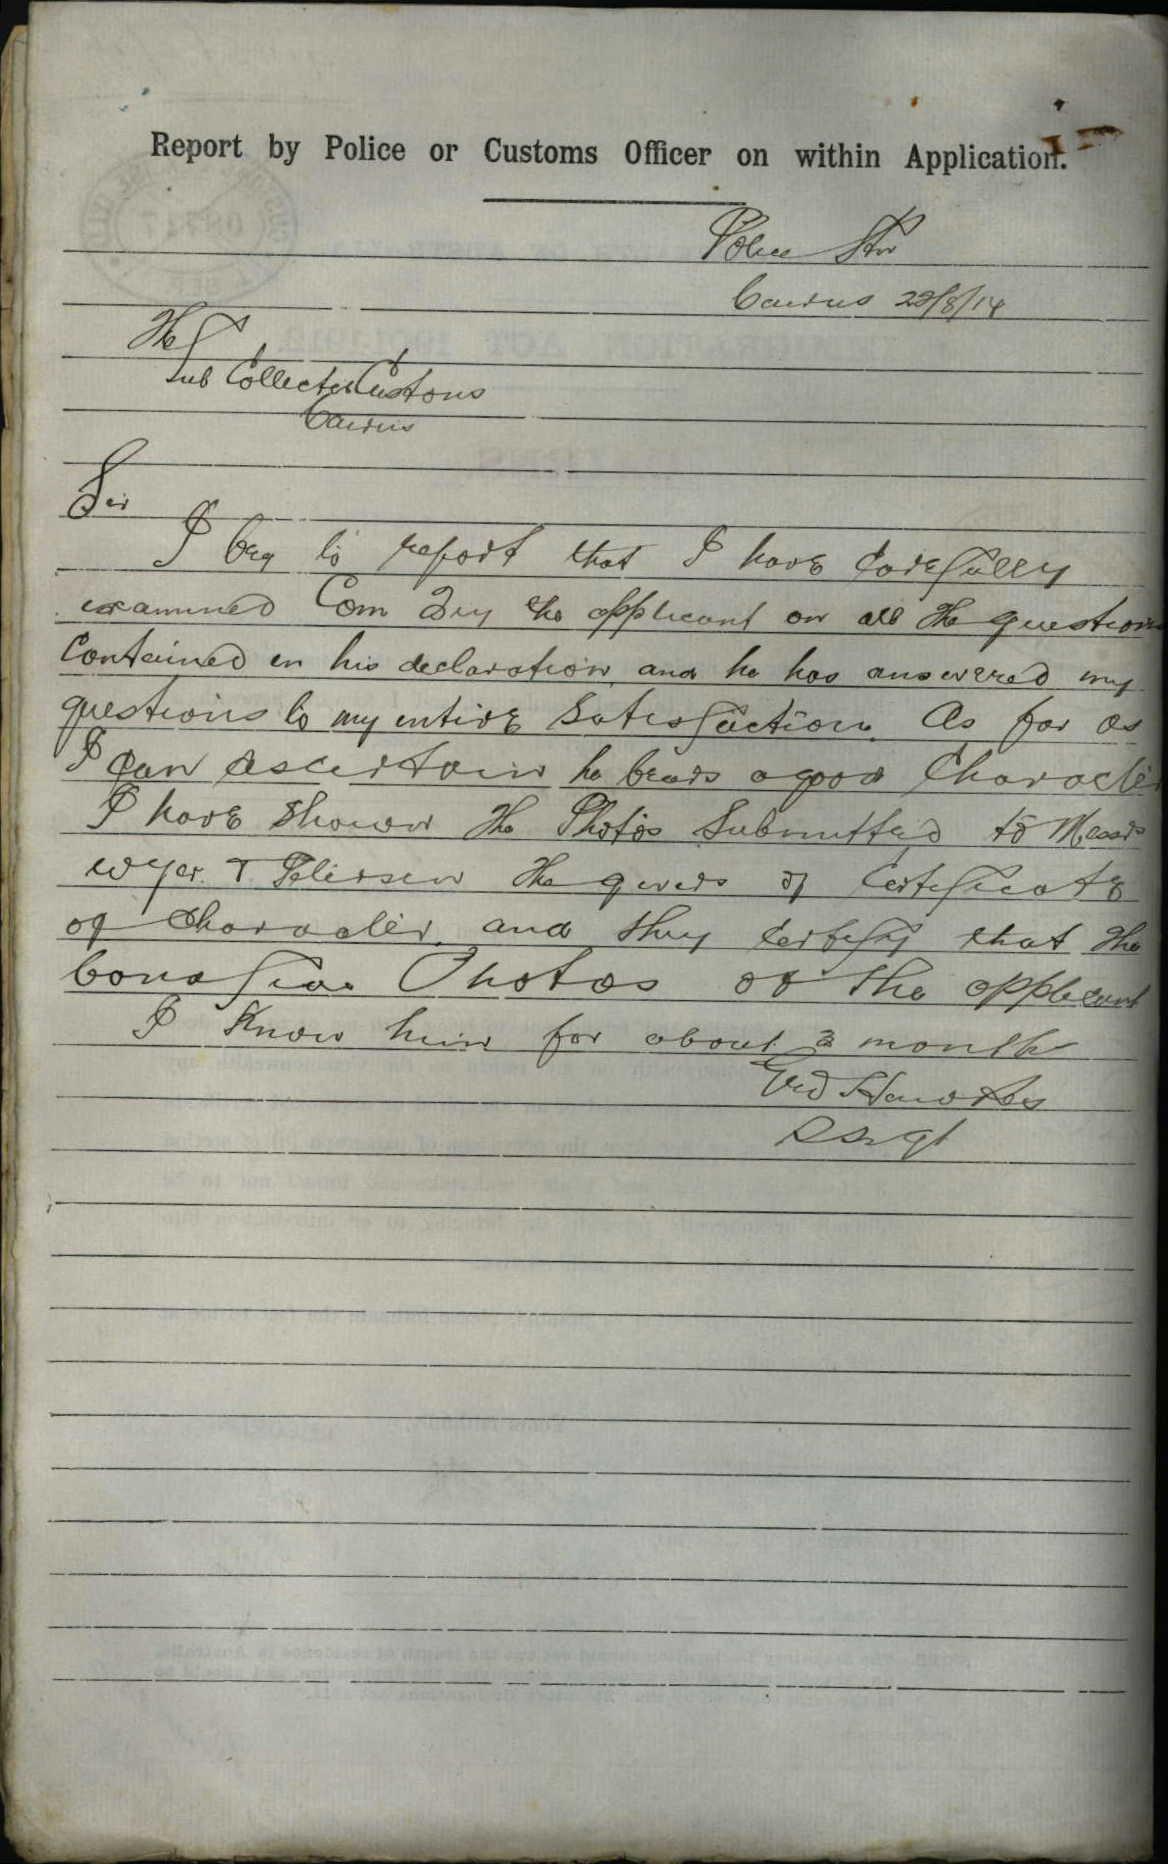 Report by Police or Customs Officer on within Application.
Police Stn
Cairns 22/8/14
The
Sub Collector Customs
Cairns
Sir
I beg to report that I have carefully
examined Com the applicant on all the questions
contained in his declaration, and he has answered my
questions to my entire satisfaction. As far as
I can ascertain he bears a good Character
I have shown the Photos Submitted to Messrs
Wyer & Petersen the givers of Certificate
of Character, and they certify that the
bonafide Photos of the applicant
I know him for about a month
Hawkes
S Sergt